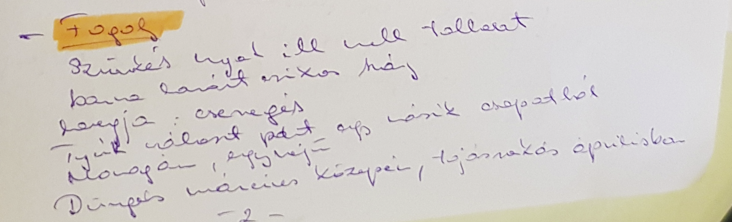 - Fogoly
Szürkés nyak ill mell tollazat
barna haránt csíkos háj
hangja: cserregés
Tyúk választ párt egy másik csapatból
Monogám, egynejű
Dürgés március közepén, tojásrakás áprilisba
- 2 -